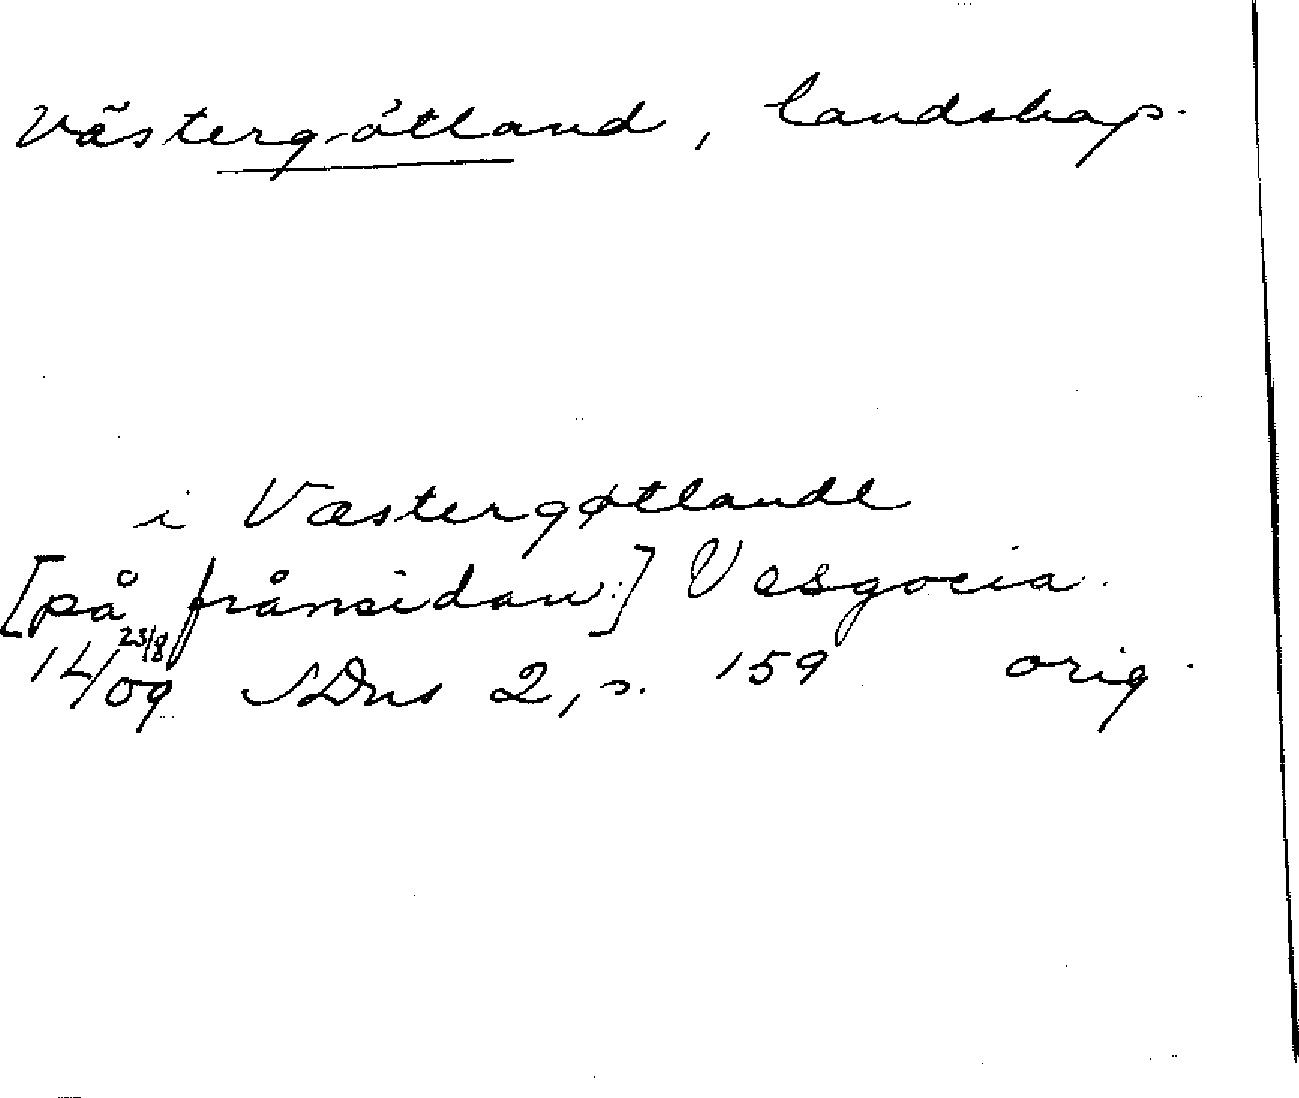 Västergötland, landskap.
i Væstergøtlandl
[på frånsidan:] Vesgocia.
14 23/8 /09 SDns 2, s. 159 orig.